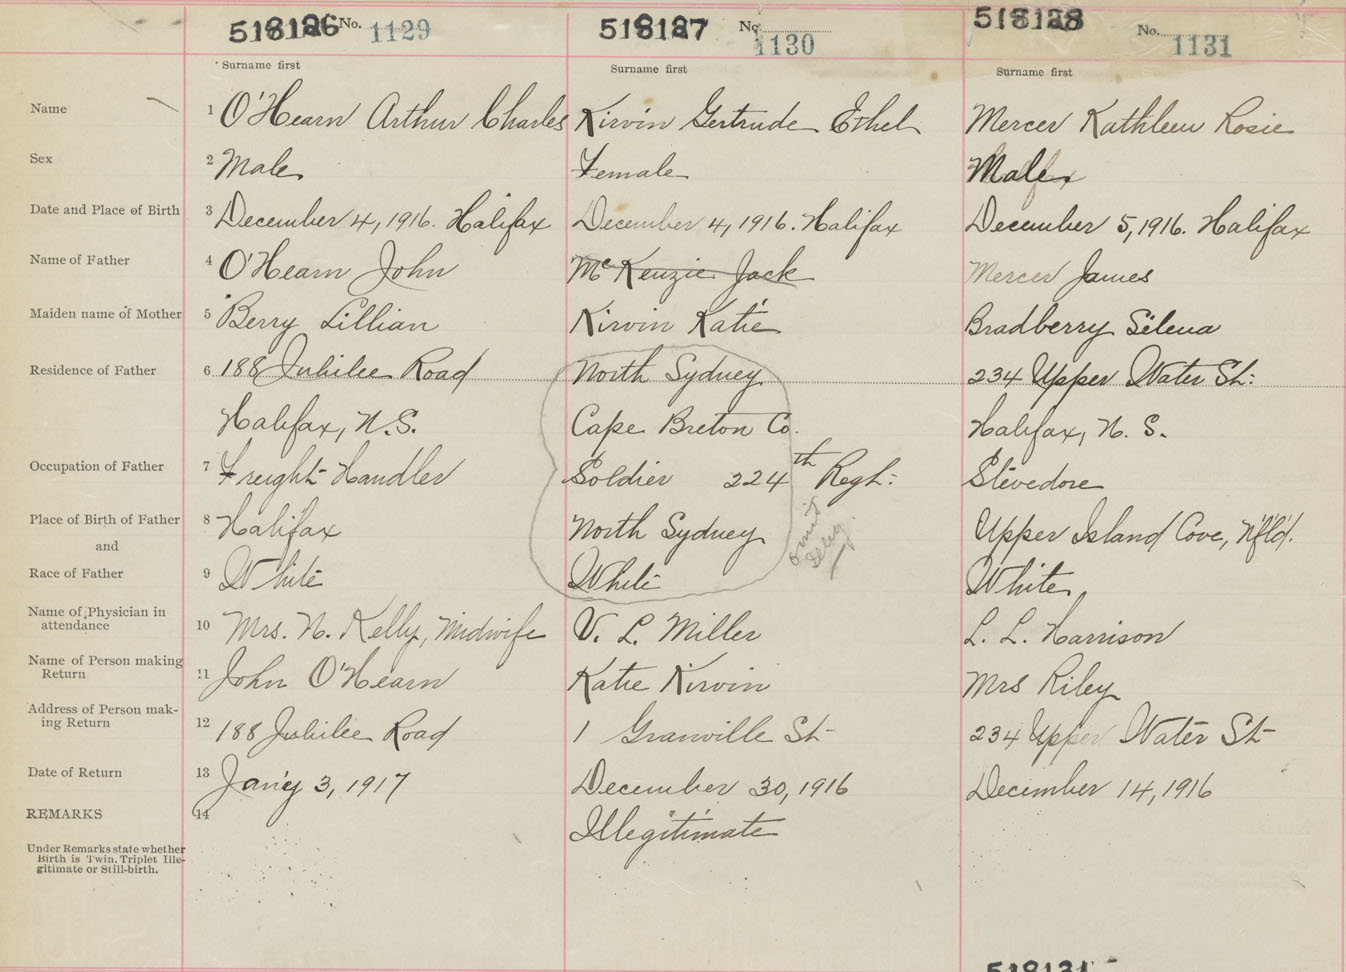 518126 No. 1129
518127 No. 1130
518128 No. 1131
Surname first
Surname first
Surname first
Name 1 O'Hearn Arthur Charles Kirvin Gertrude Ethel Mercer Kathleen Rosie
Sex 2 Male Female Male
Date and Place of Birth 3 December 4, 1916. Halifax December 4, 1916. Halifax December 5, 1916. Halifax
Name of Father 4 O'Hearn John McKenzie Jack Mercer James
Maiden name of Mother 5 Berry Lillian Kirvin Katie Bradberry Selena
Residence of Father 6 188 Jubilee Road North Sydney 234 Upper Water St:
Halifax, N.S. Cape Breton Co. Halifax, N. S.
Occupation of Father 7 Freight Handler Soldier 224th Regt: Stevedore
Place of Birth of Father 8 Halifax North Sydney Upper Island Cove, Nfld.
and
omit
Race of Father 9 White White White
Name of Physician in
attendance 10 Mrs. N. Kelly, Midwife V. L. Miller L. L. Harrison
Name of Person making
Return 11 John O'Hearn Katie Kirvin Mrs Riley
Address of Person mak-
ing Return 12 188 Jubilee Road 1 Granville St 234 Upper Water St
Date of Return 13 Jan'y 3, 1917 December 30, 1916 December 14, 1916
REMARKS 14 Illegitimate
Under Remarks state whether
Birth is Twin. Triplet Ille-
gitimate or Still-birth.
518131